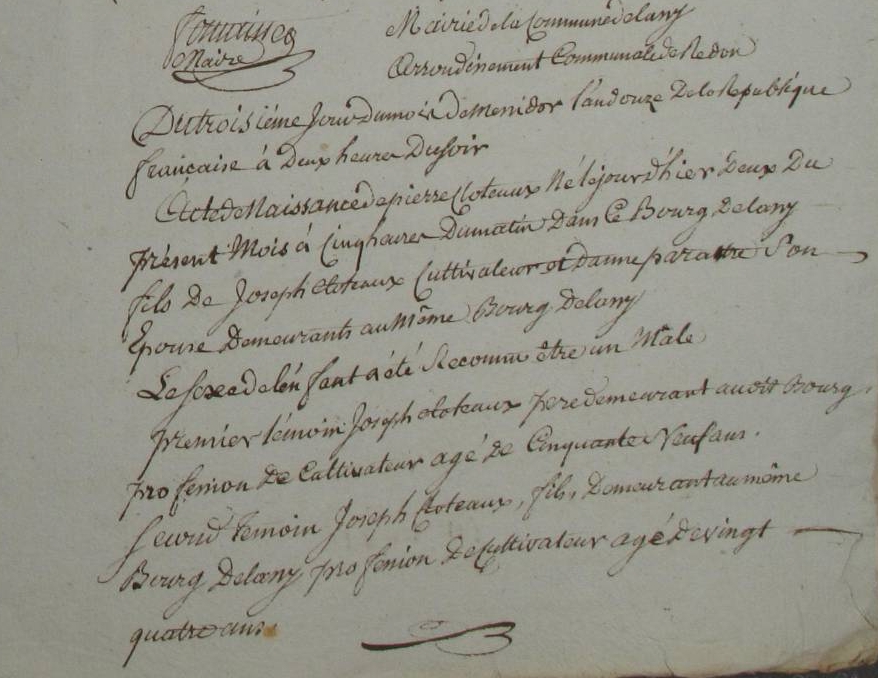 Maire
Mairie de la Commune de lany
Arrondissement Communale de Redon
Du troisiéme Jour du mois De Messidor l'an douze De la Republique
française à Deux heures Du soir
Acte de Naissance de pierre Cloteaux Né le jour d'hier Deux Du
présent Mois à Cinq heures Du matin Dans Ce Bourg De lany
fils De Joseph Cloteaux Cultivateur et D'anne paratre Son
Epouse Demeurants au Même Bourg De lany
Le sexe de l'enfant a été Reconnu être un Mâle
premier témoin Joseph Cloteaux pere demeurant au dit Bourg
profession De Cultivateur agé de Cinquante Neuf ans.
second temoin Joseph Cloteaux, fils, Demeurant au même
Bourg De lany profession De Cultivateur agé De vingt
quatre ans.